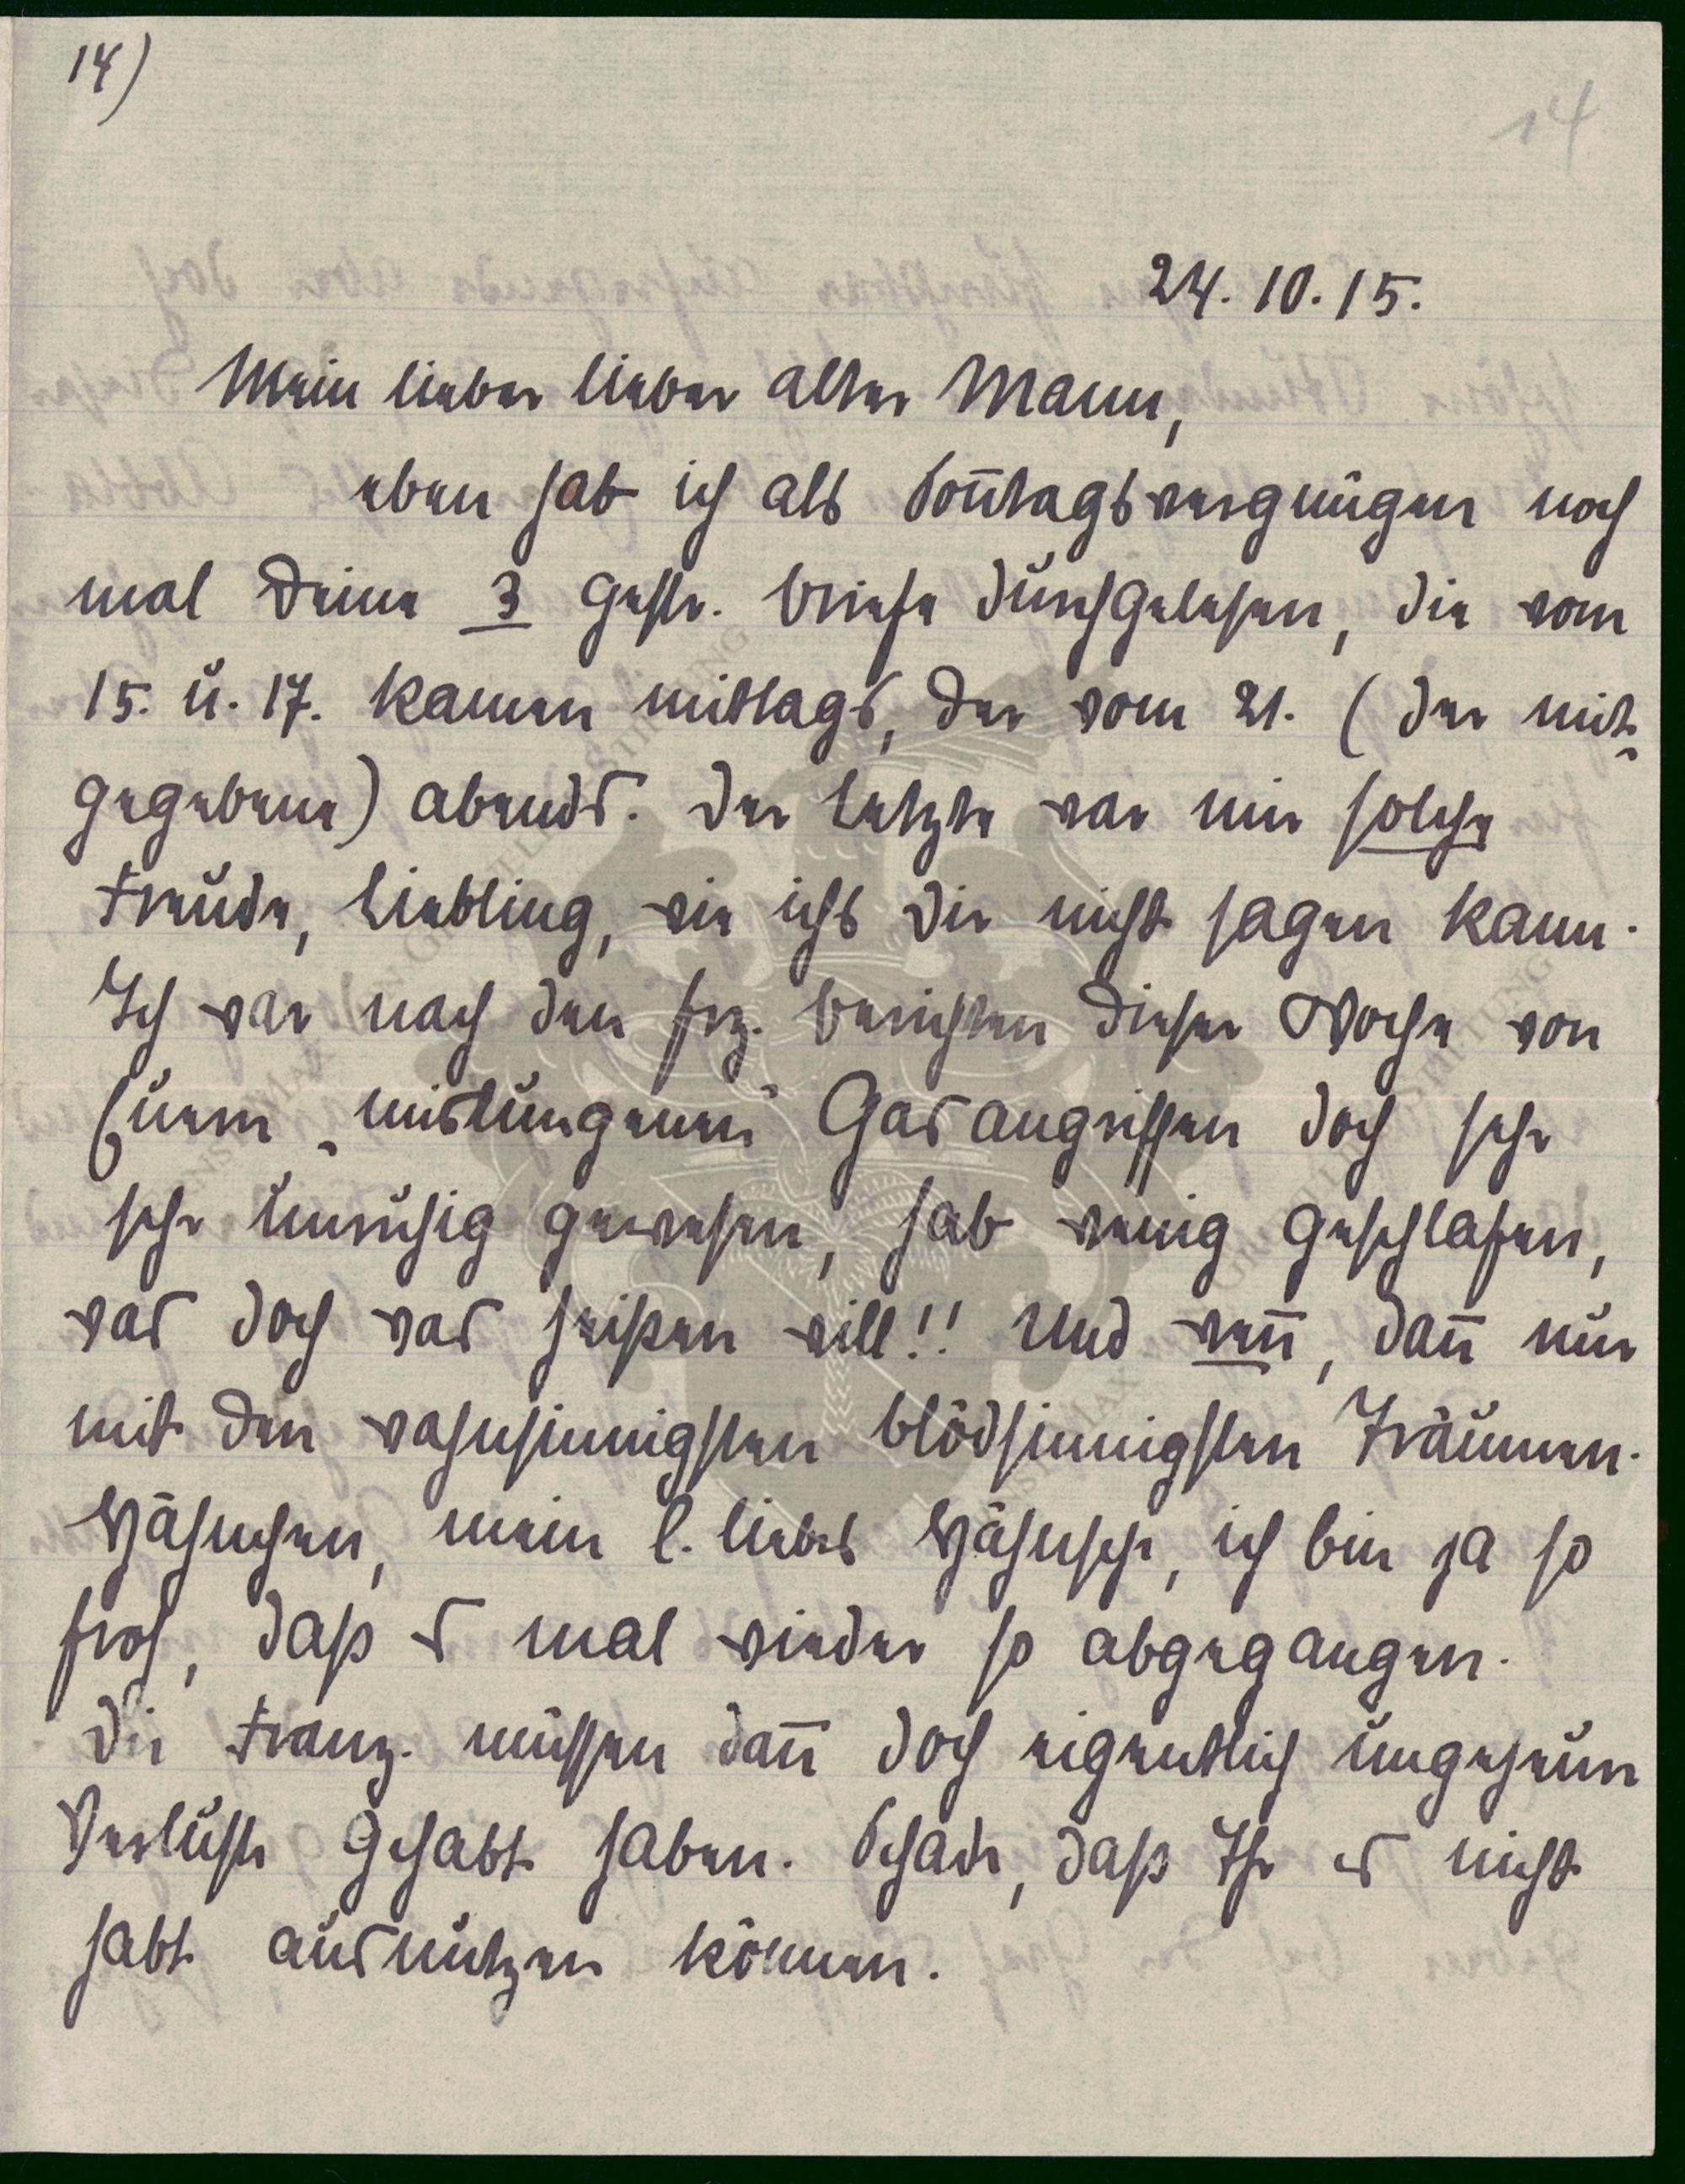 14)
14
24. 10. 15.
Mein lieber lieber alter Mann,
eben hab ich als Soñtagsvergnügen noch
mal Deine 3 gestr. Briefe durchgelesen, die vom
15. u. 17. kamen mittags, der vom 21. (der mit-
gegebene) abends. Der letzte war mir solche
Freude, Liebling, wie ichs Dir nicht sagen kann.
Ich war nach den frz. Berichten dieser Woche von
Euern „mislungenen" Gasangriffen doch sehr
sehr unruhig gewesen, hab wenig geschlafen,
was doch was heißen will!! Und weñ, dañ nur
mit den wahnsinnigsten blödsinnigsten Träumen.
Hähnchen, mein l. liebes Hähnche, ich bin ja so
froh, daß es mal wieder so abgegangen.
Die Franz. müssen dañ doch eigentlich ungeheure
Verluste gehabt haben. Schade, daß Ihr es nicht
habt ausnutzen können.